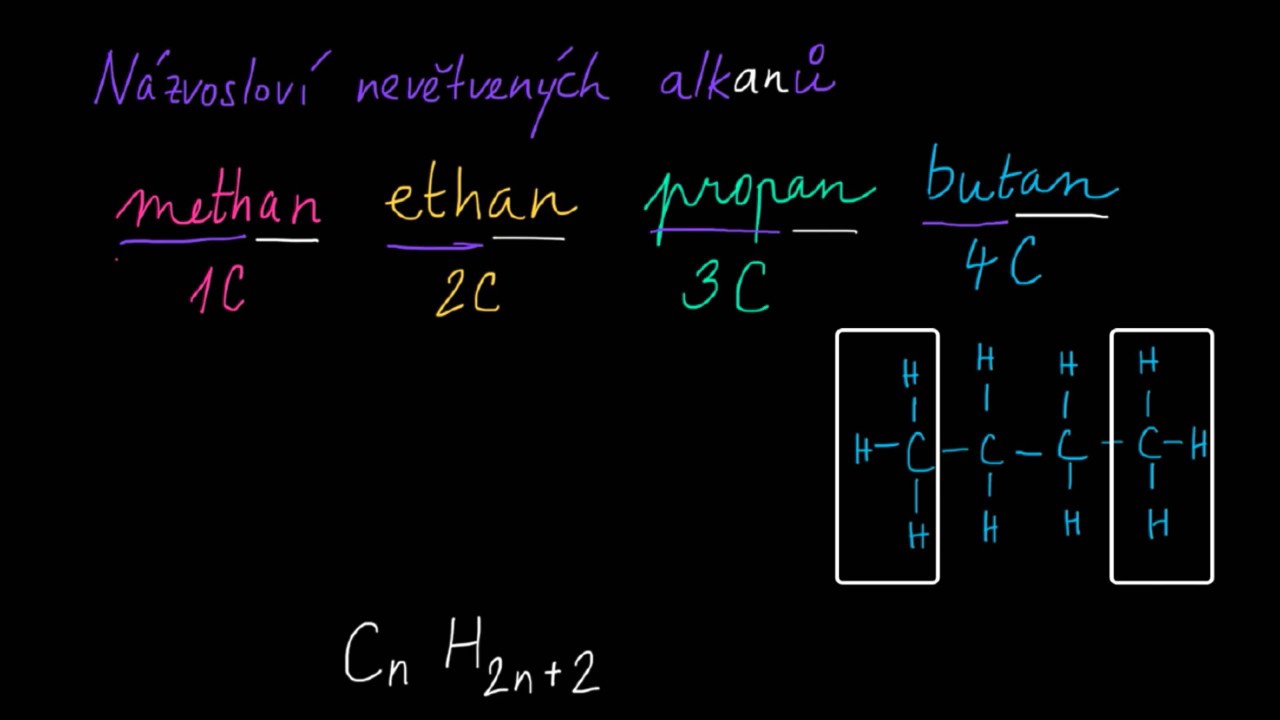 Názvosloví nevětvených alkanů
methan ethan propan butan
1C 2C 3C 4C
H H H H
H-C-C-C-C-H
H H H H
CnH2n+2